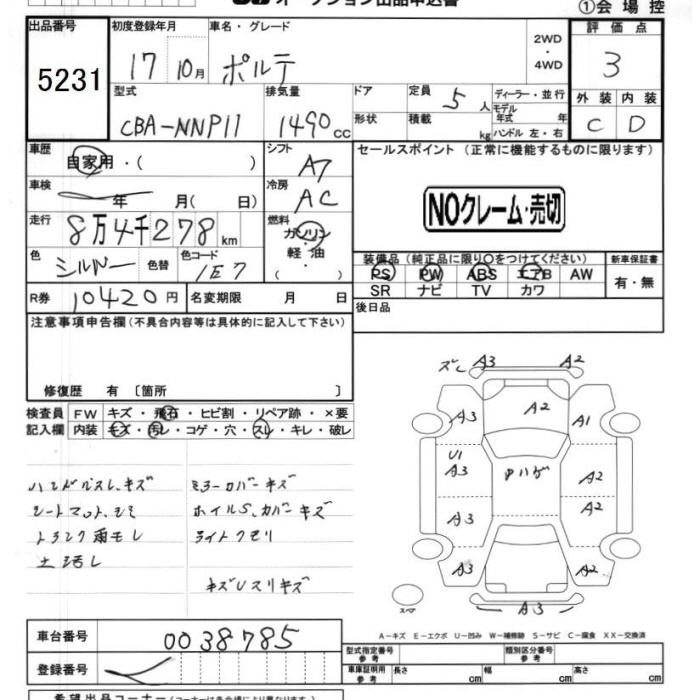 オークション出品申込書
①会場控
出品番号 初度登録年月 車名・グレード 2WD ・ 4WD 評価点
5231 17 10月 ポルテ 3
型式 排気量 ドア形状 定員 5人 積載 kg ディーラー・並行 モデル年式 年 ハンドル 左・右 外装 内装
CBA-NNP11 1490cc C D
車歴 自家用・( ) シフト A7 セールスポイント (正常に機能するものに限ります)
車検 年 月( 日) 冷房 AC
NOクレーム・売切
走行 8万4千278km 燃料 ガソリン・軽油・
色 シルバー 色替 色コード 1E7
装備品(純正品に限り○をつけてください) 新車保証書
PS PW ABS エアB AW 有・無
SR ナビ TV カワ
R券 10420円 名変期限 月 日
後日品
注意事項申告欄(不具合内容等は具体的に記入して下さい)
修復歴 有 〔箇所 〕
検査員 FW キズ・飛石・ヒビ割・リペア跡・×要
記入欄 内装 キズ・汚レ・コゲ・穴・スレ・キレ・破レ
ハンドルスレ、キズ ミラーカバーキズ
シートマット、シミ ホイルS、カバーキズ
トランク雨モレ ライトクモリ
土汚レ
キズUスリキズ
ズレ A3 A2
A3 A2 A1
U1
A3 ヤハゲ A2
A3 A2
A3 A2
スペア A3
A-キズ E-エクボ U-凹み W-補修跡 S-サビ C-腐食 XX-交換済
車台番号 0038785
型式指定番号 参考 類別区分番号 参考
登録番号
車庫証明用 参考 長さ cm 幅 cm 高さ cm
希望出品コーナー(コーナーは会場により異なります)